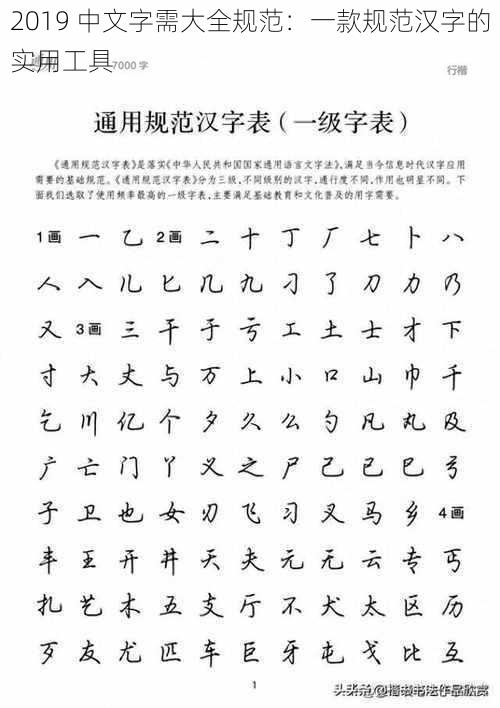 2019 中文字需大全规范：一款规范汉字的
实用工具
7000 字
行楷
通用规范汉字表（一级字表）
《通用规范汉字表》是落实《中华人民共和国国家通用语言文字法》，满足当今信息时代汉字应用
需要的基础规范。《通用规范汉字表》分为三级，不同级别的汉字，通行度不同，作用也明显不同。下
面我们选取了使用频率最高的一级字表，主要满足基础教育和文化普及的用字需要。
1画 一 乙 2画 二 十 丁 厂 七 卜 八
人 入 儿 匕 几 九 刁 了 刀 力 乃
又 3画 三 干 于 亏 工 土 士 才 下
寸 大 丈 与 万 上 小 口 山 巾 千
乞 川 亿 个 夕 久 么 勺 凡 丸 及
广 亡 门 丫 义 之 尸 己 已 巳 弓
子 卫 也 女 刃 飞 习 叉 马 乡 4画
丰 王 开 井 天 夫 元 无 云 专 丐
扎 艺 木 五 支 厅 不 犬 太 区 历
歹 友 尤 匹 车 巨 牙 屯 戈 比 互
1
头条@楷书书法作品欣赏